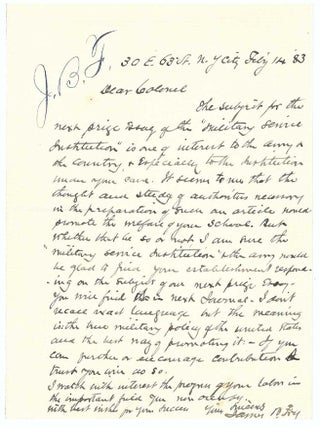 J.B.F.
30 E. 63 St. N.Y City Feby 14 '83
Dear Colonel
The subject for the
next prize Essay of the "Military Service
Institution" is one of interest to the army &
the Country, & Especially to the Institution
under your care. It seems to me that the
thought and study of authorities necessary
in the preparation of such an article would
promote the welfare of your School. But
whether that be so or not I am sure the
"Military Service Institution" & the army would
be glad to find your establishment respond-
ing on the subject of your next prize Essay
You will find in next Journal. I don't
recall exact language but the meaning
is the true military policy of the United States
and the best way of promoting it — If you
can further or encourage contribution I
trust you will do so.
I watch with interest the progress of your labor in
the important field you now occupy
with best wishes for your success Yours
James B. Fry